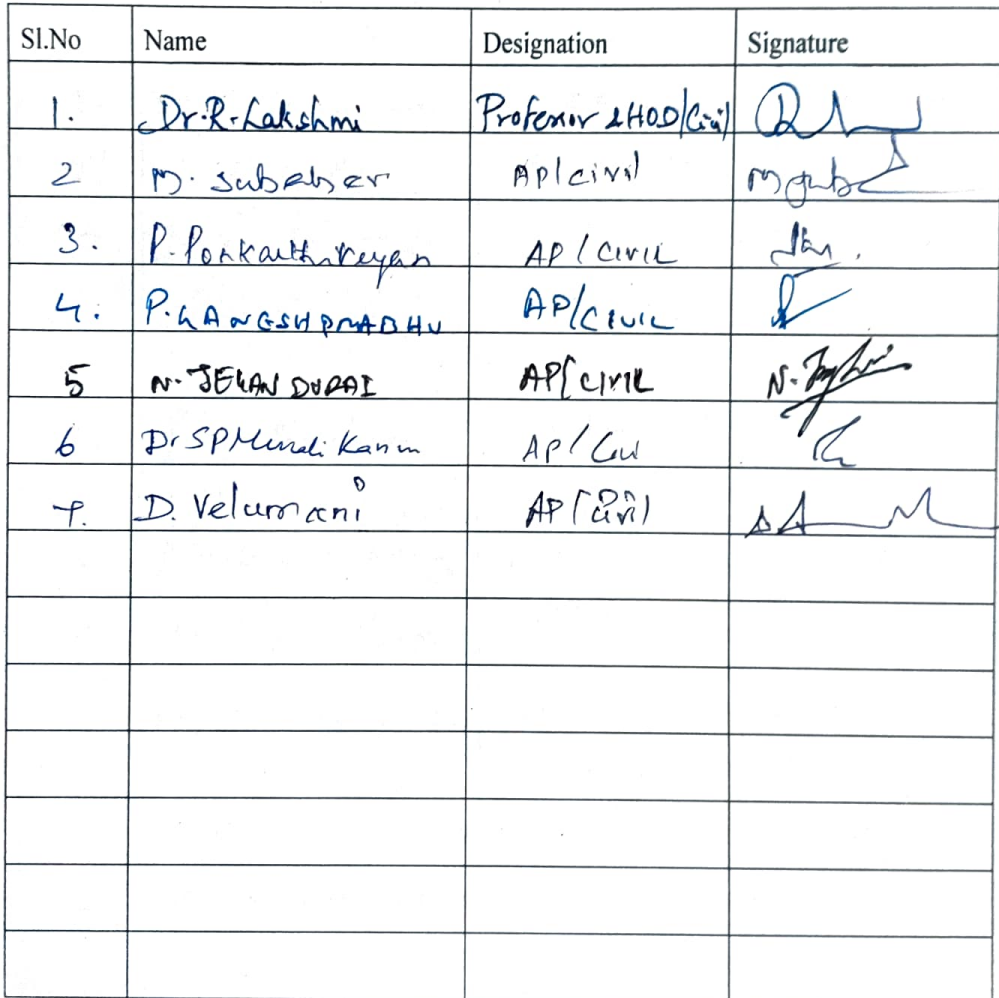 Sl.No Name Designation Signature
1. Dr.R.Lakshmi Professor & HOD/Civil
2 M. AP/civil
3. P. Ponkarthikeyan AP/CIVIL
4. P.GANGESH PRABHU AP/CIVIL
5 N. JEGAN DURAI AP/CIVIL
6 Dr SP AP/Civil
7. D. Velumani AP/Civil